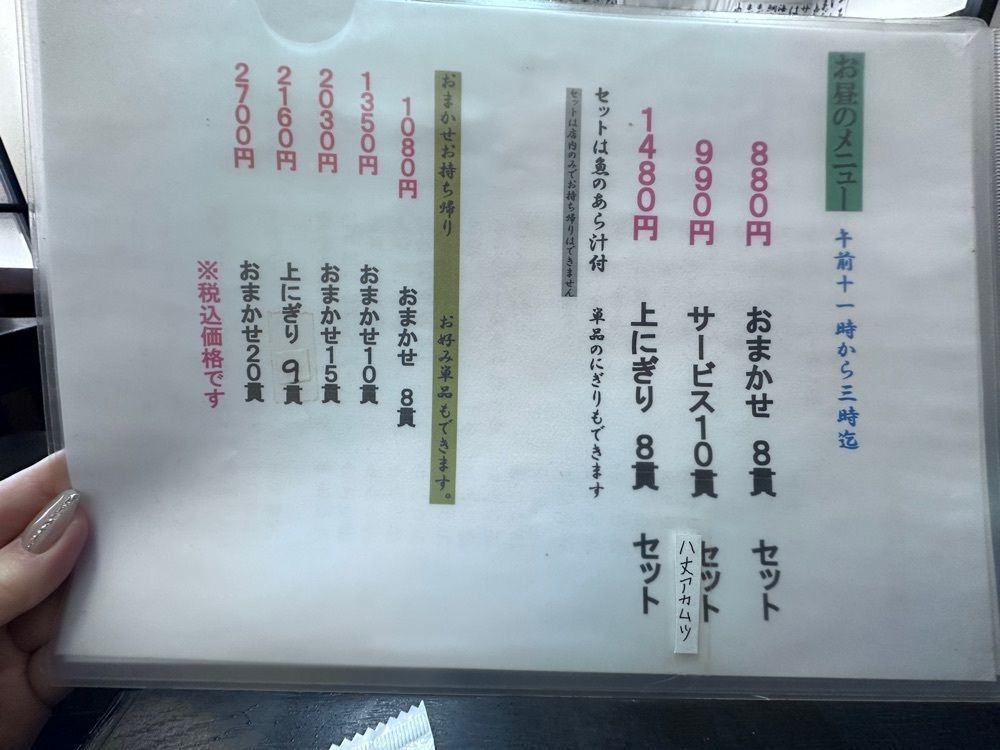 お昼のメニュー 午前十一時から三時迄
880円 おまかせ 8貫 セット
990円 サービス10貫 セット
八丈アカムツ
1480円 上にぎり 8貫 セット
セットは魚のあら汁付 単品のにぎりもできます
セットは店内のみでお持ち帰りはできません
おまかせお持ち帰り お好み単品もできます。
1080円 おまかせ 8貫
1350円 おまかせ10貫
2030円 おまかせ15貫
2160円 上にぎり 9貫
2700円 おまかせ20貫
※税込価格です